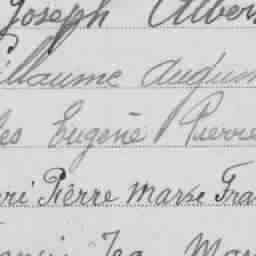 Joseph Alber
illaume Augus
les Eugène Pierre
ri Pierre Marie Fra